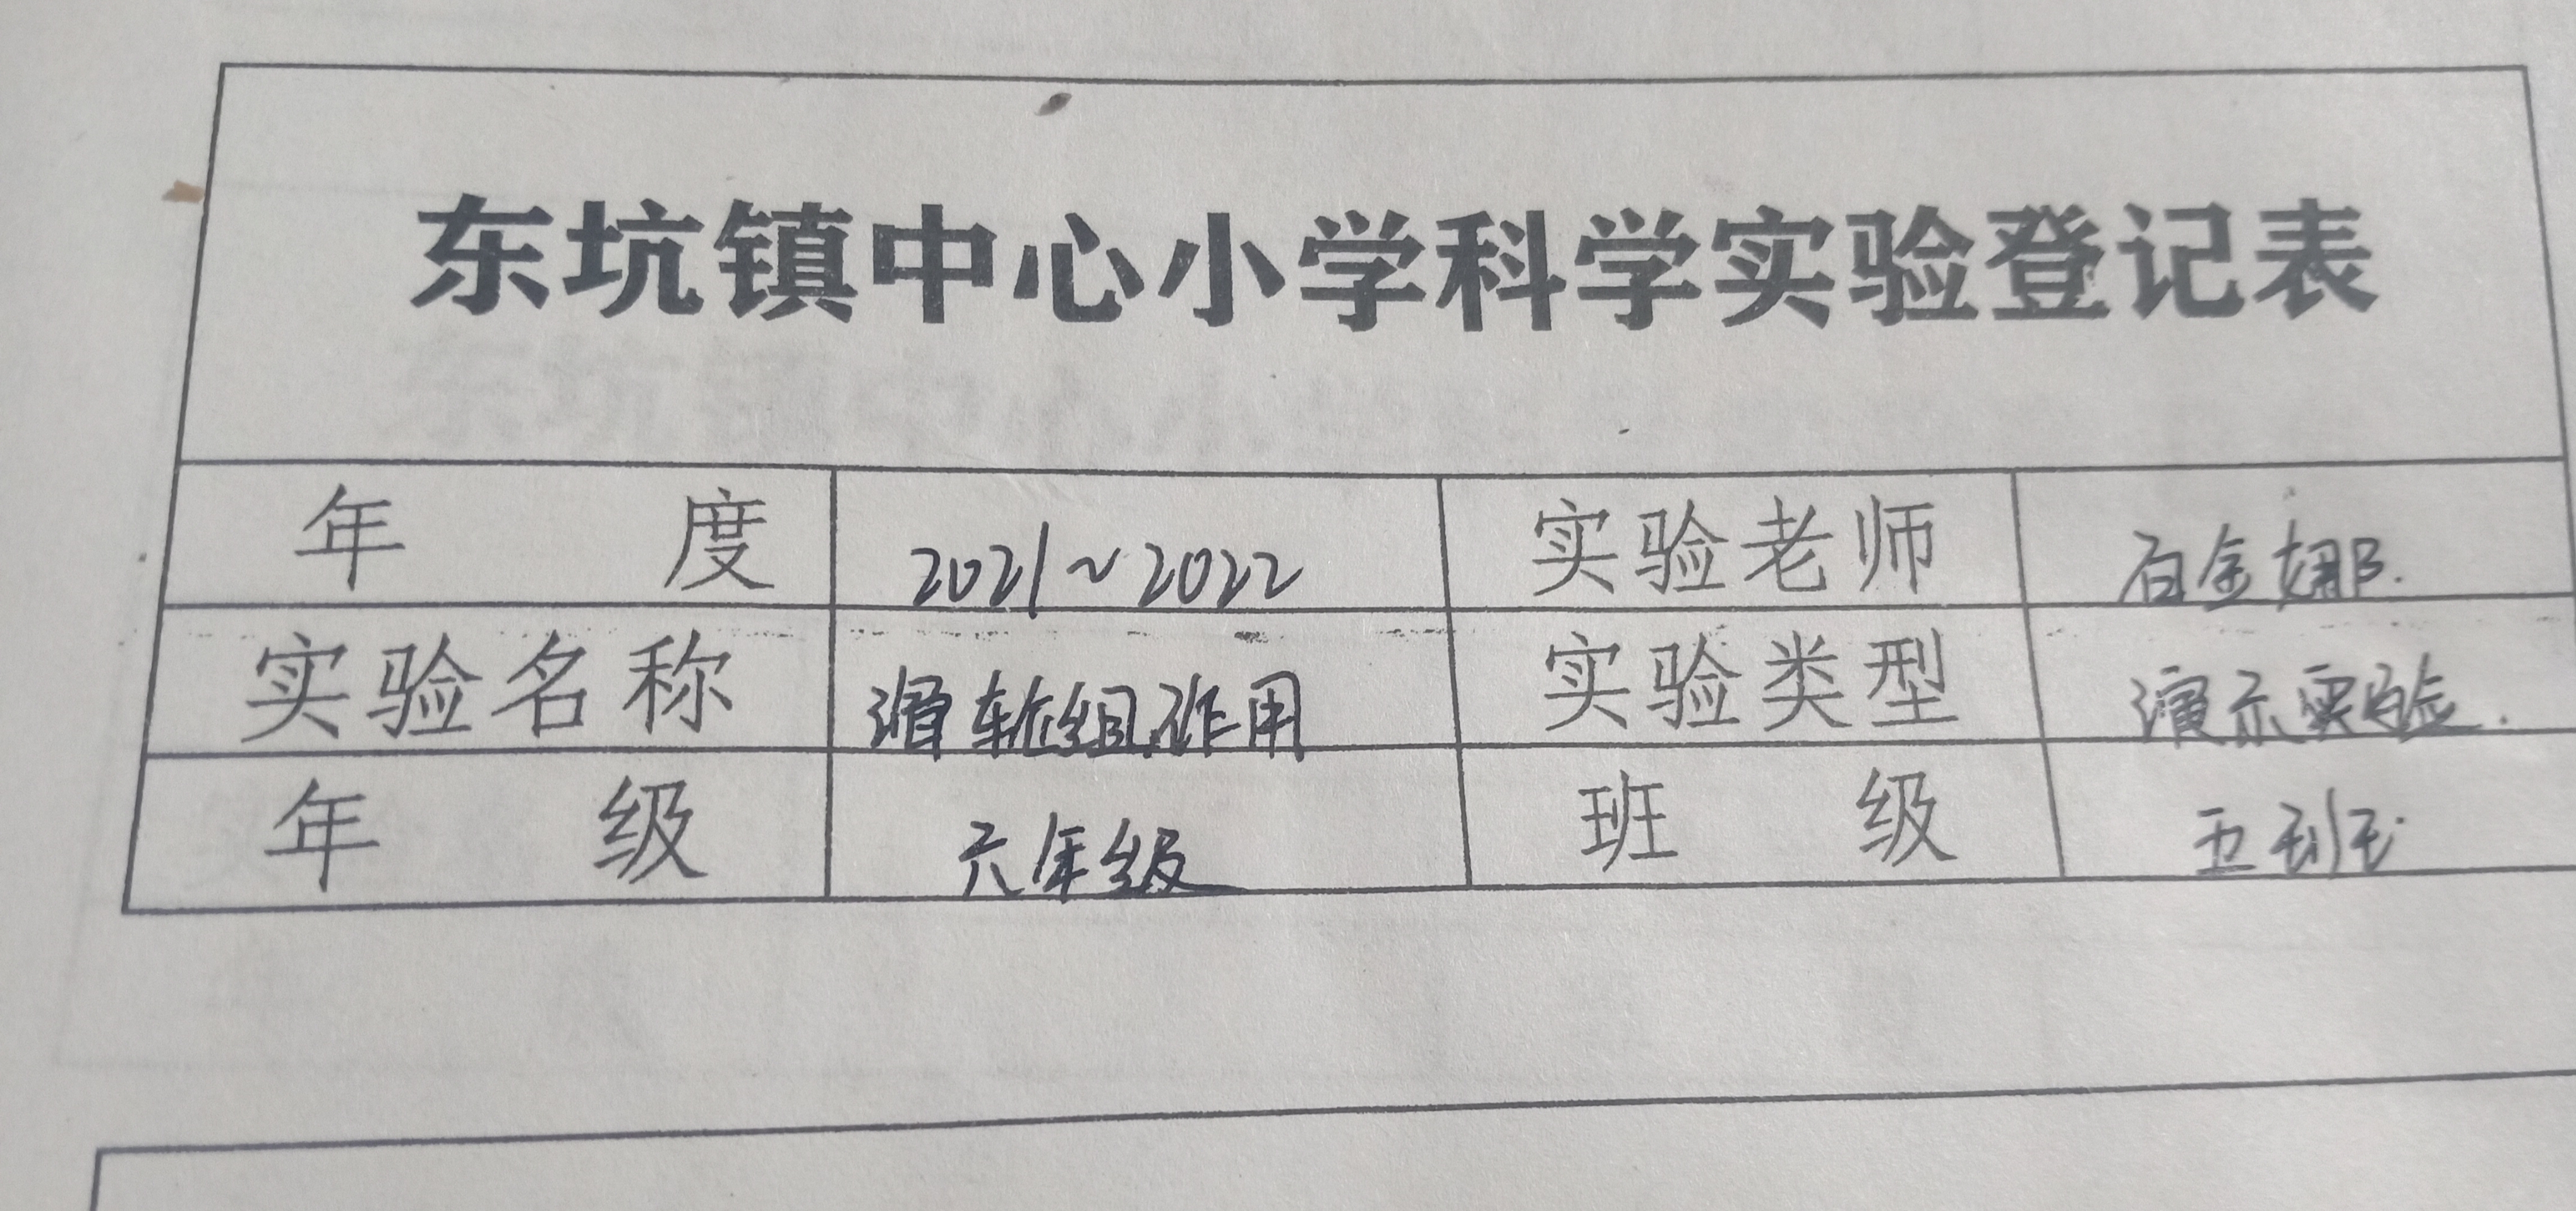 东坑镇中心小学科学实验登记表
年 度 2021~2022 实验老师 白金娜.
实验名称 滑轮组作用 实验类型 演示实验.
年 级 六年级 班 级 五班